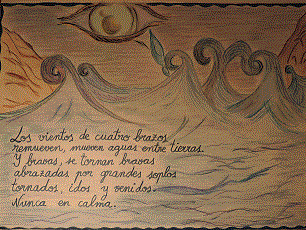 Los vientos de cuatro brazos
remueven, mueven aguas entre tierras.
Y bravas, se tornan bravas
abrazadas por grandes soplos
tornados, idos y venidos.
Nunca en calma.